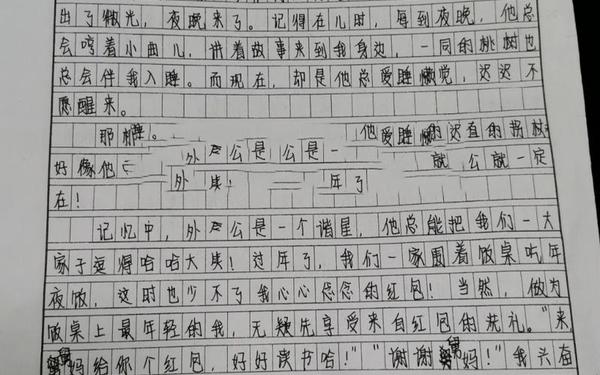 出了微光，夜晚来了。记得在儿时，每到夜晚，他总
会哼着小曲儿，讲着故事来到我身边，一同的桃树也
总会伴我入睡。而现在，却是他总爱睡懒觉，迟迟不
愿醒来。
那 。 他爱睡懒 的迟 直的拐杖
好像他 外 公是 公是一 就 公就一定
在！ 外 年了
记忆中，外公是一个谐星，他总能把我们一大
家子逗得哈哈大笑！过年了，我们一家围着饭桌吃年
夜饭，这时也少不了我心心念念的红包！当然，做为
饭桌上最年轻的我，无疑先享受来自红包的洗礼。“来
舅妈给你个红包，好好读书哈！”“谢谢舅妈！”我头奋